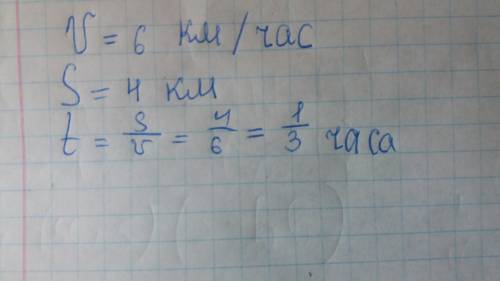 V = 6 км/час
S = 4 км
t = S/v = 4/6 = 1/3 часа